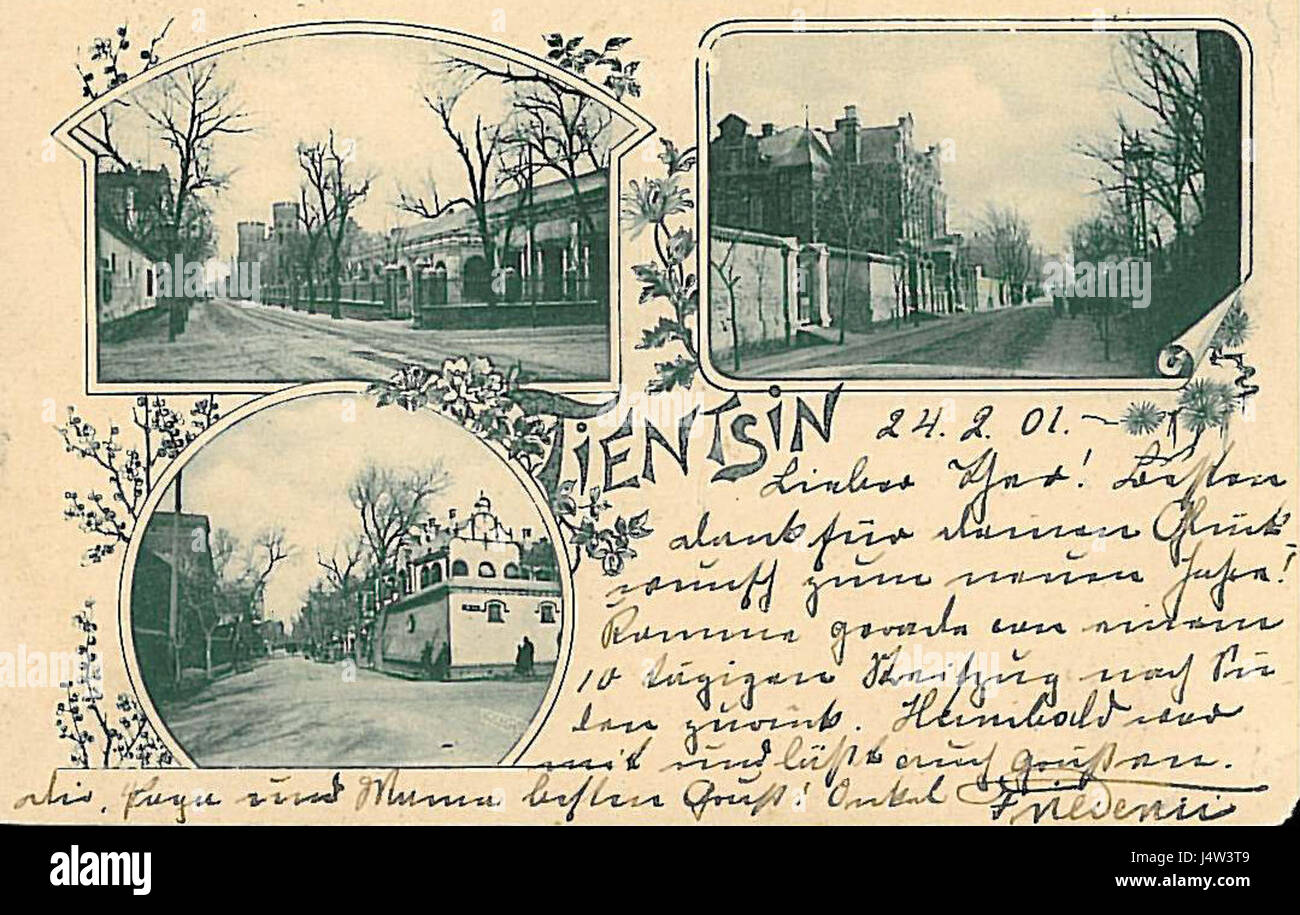 TIENTSIN
24. 2. 01.
Lieber Theo! Besten
dank für deinen Glück
wunsch zum neuen Jahre!
Komme gerade von einem
10 tägigen Streifzug nach Sü
den zurück. Humbald war
mit und läßt auch grüßen.
dir, Papa und Mama besten Gruß! Onkel
alamy
Image ID: J4W3T9
www.alamy.com